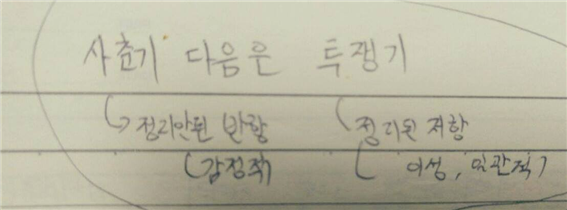 사춘기 다음은 투쟁기
정리안된 반항 정리된 저항
(감정적) 이성, 일관적?